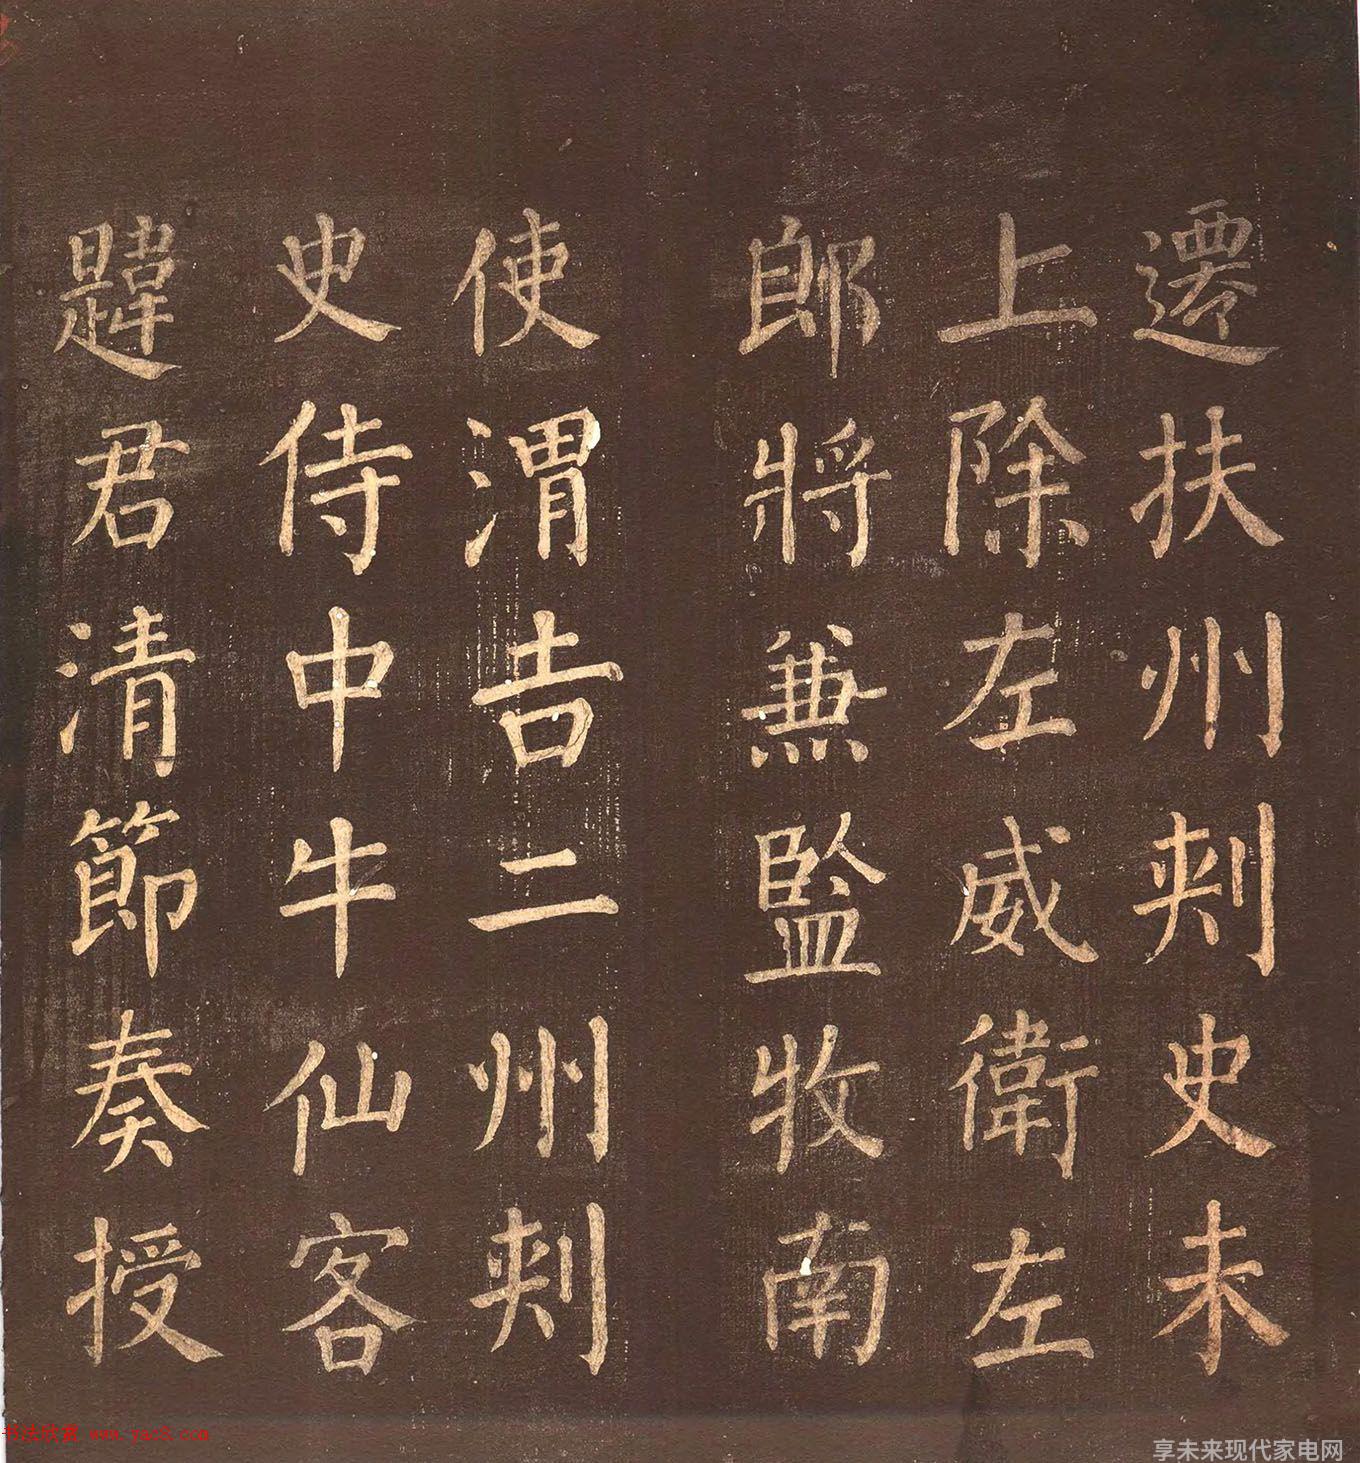 遷扶州刾史未
上除左威衛左
郎將兼監牧南
使渭吉二州刾
史侍中牛仙客
韙君清節奏授
书法欣赏 www.yac8.com
享未来现代家电网